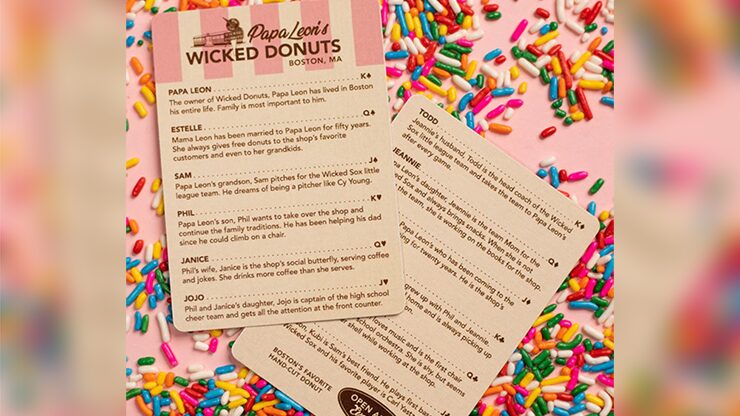 Papa Leon's
WICKED DONUTS
BOSTON, MA
PAPA LEON K♠
The owner of Wicked Donuts, Papa Leon has lived in Boston
his entire life. Family is most important to him.
ESTELLE Q♠
Mama Leon has been married to Papa Leon for fifty years.
She always gives free donuts to the shop's favorite
customers and even to her grandkids.
SAM J♠
Papa Leon's grandson, Sam pitches for the Wicked Sox little
league team. He dreams of being a pitcher like Cy Young.
PHIL K♥
Papa Leon's son, Phil wants to take over the shop and
continue the family traditions. He has been helping his dad
since he could climb on a chair.
JANICE Q♥
Phil's wife, Janice is the shop's social butterfly, serving coffee
and jokes. She drinks more coffee than she serves.
JOJO J♥
Phil and Janice's daughter, Jojo is captain of the high school
cheer team and gets all the attention at the front counter.
Papa Leon's
WICKED DONUTS
TODD K♦
Jeannie's husband, Todd is the head coach of the Wicked
Sox little league team and takes the team to Papa Leon's
after every game.
JEANNIE Q♦
Papa Leon's daughter, Jeannie is the team Mom for the
Sox and always brings snacks. When she is not
the team, she is working on the books for the shop.
J♦
Papa Leon's who has been coming to the
for twenty years. He is the shop's
K♣
grew up with Phil and Jeannie.
home and is always picking up
Q♣
loves music and is the first chair
school orchestra. She is shy, but seems
shell while working at the shop.
J♣
Leon, Kubi is Sam's best friend. He plays first base
Wicked Sox and his favorite player is Carl
BOSTON'S FAVORITE
HAND-CUT DONUT
OPEN